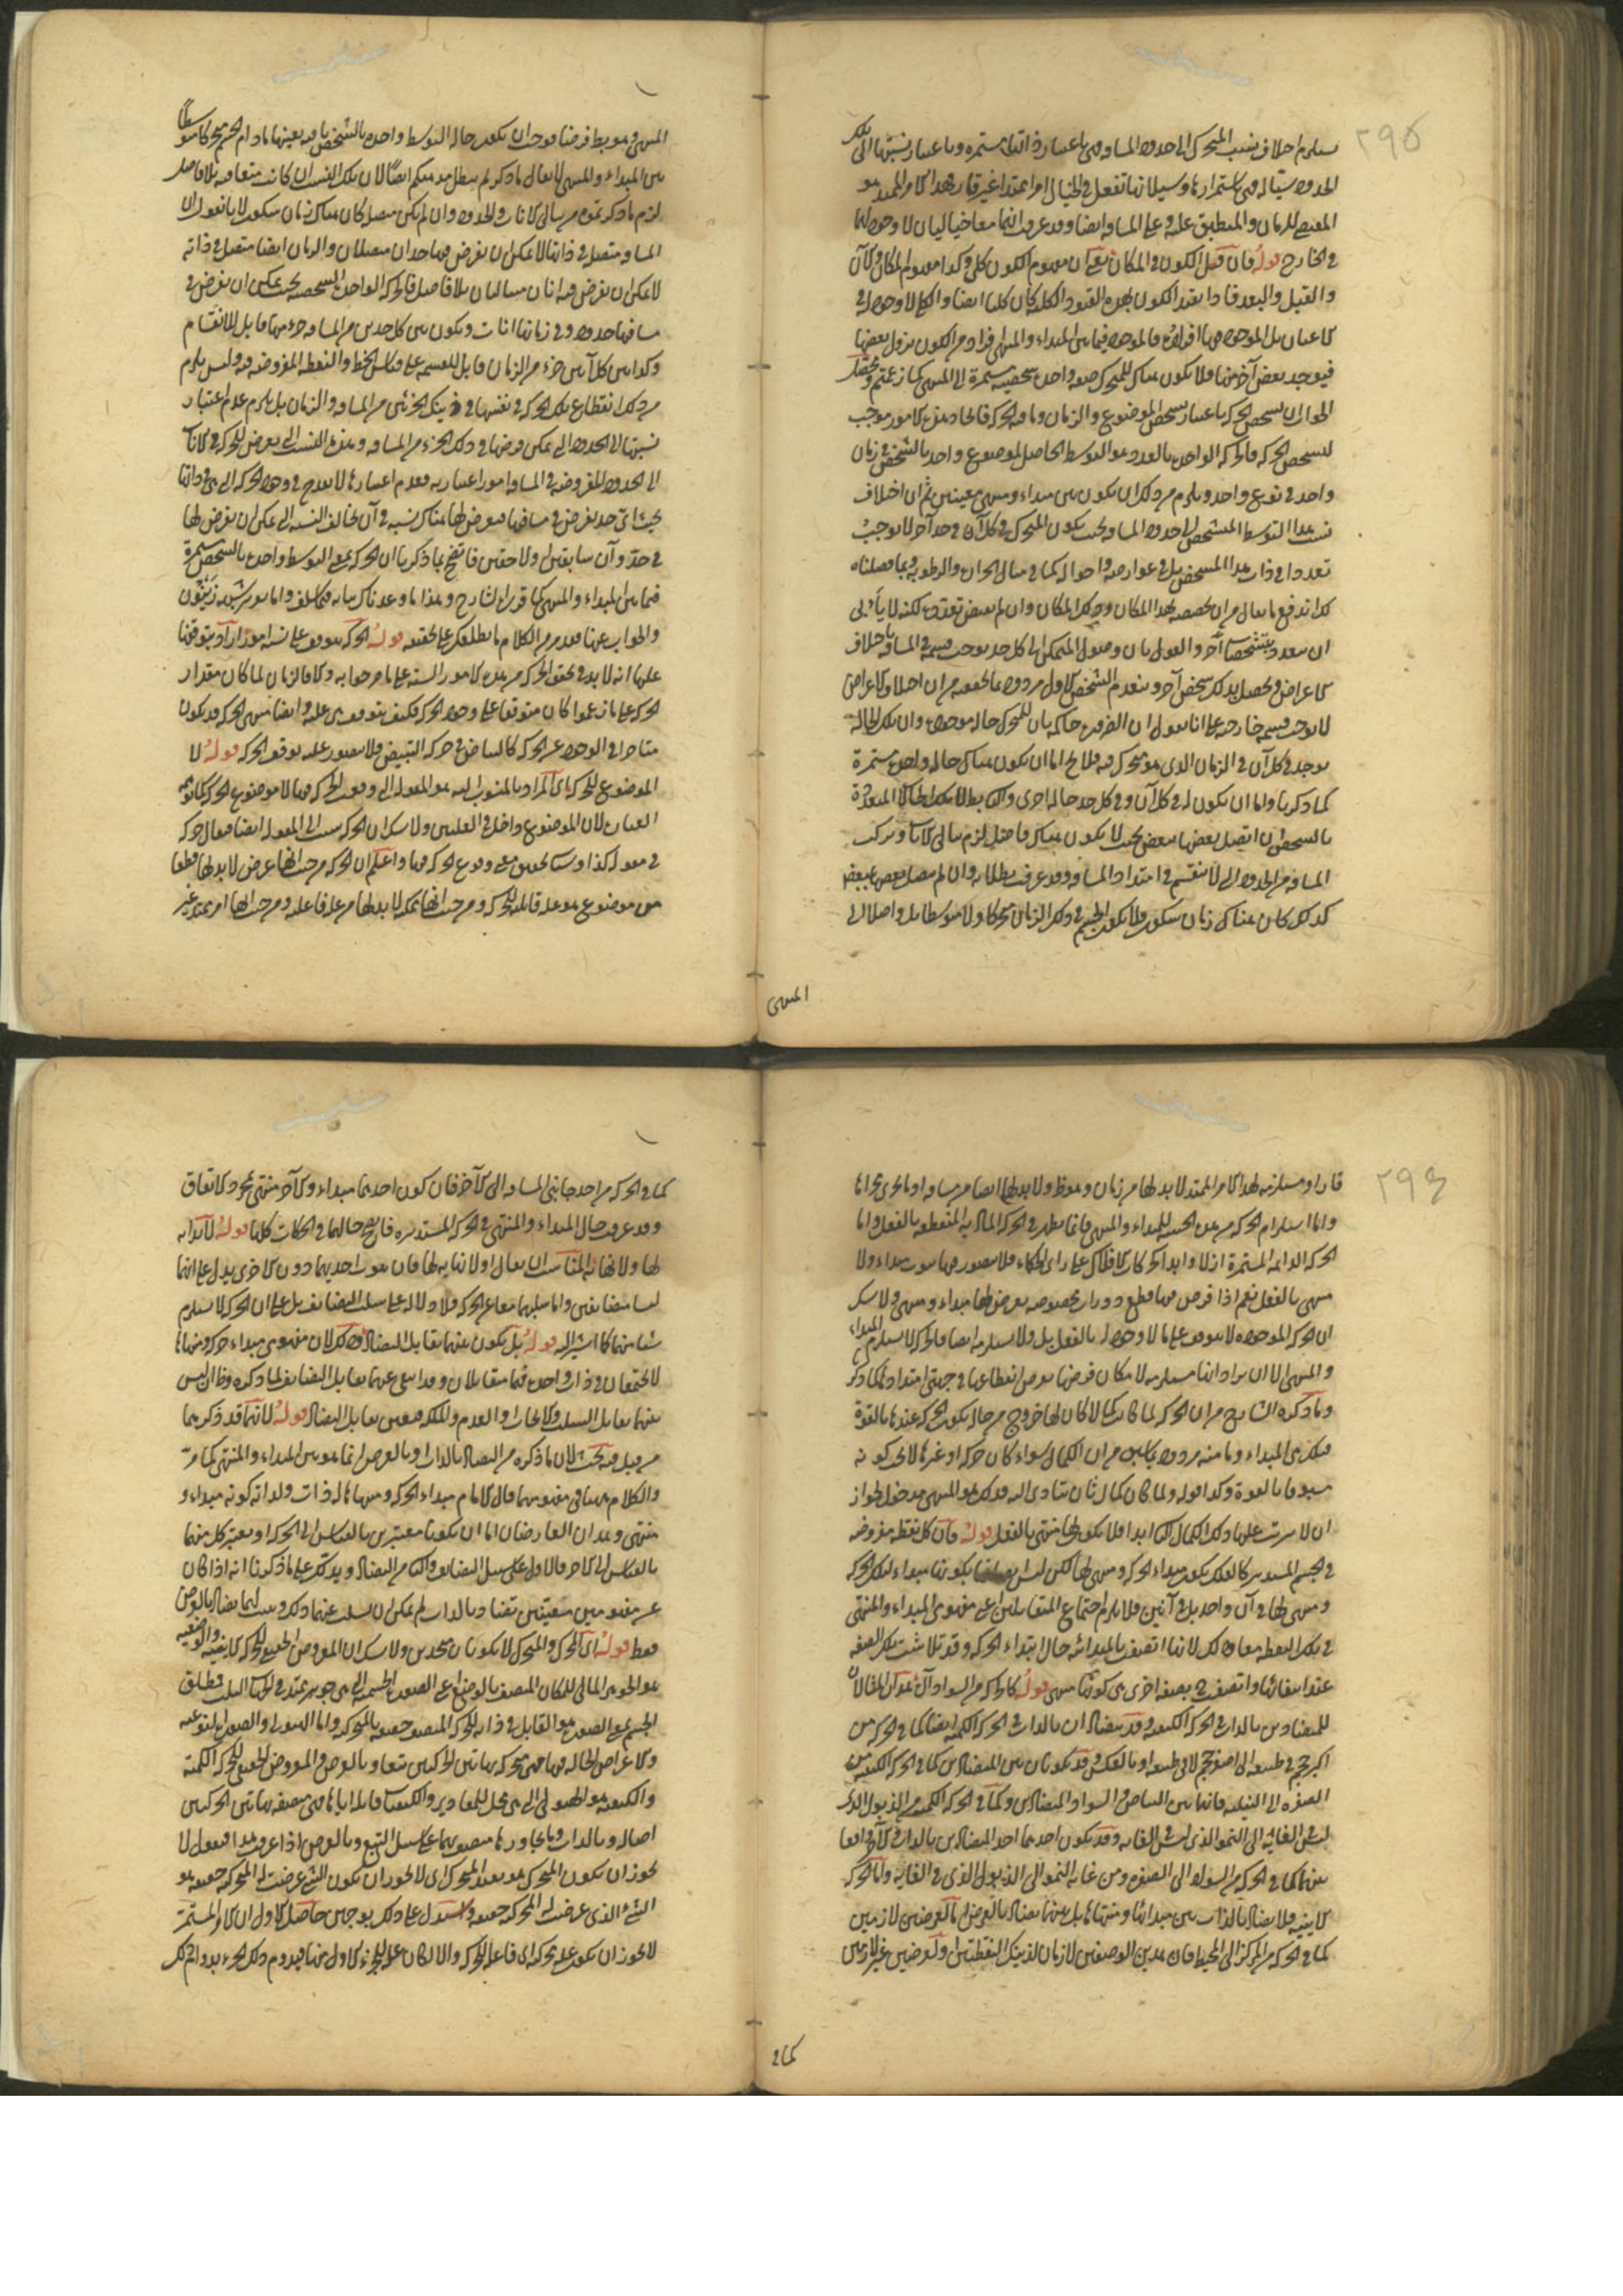 ٢٩٥
يستلزم اختلاف نسب المتحرك الى حدود المسافة فهى باعتبار ذاتها مستمرة وباعتبار نسبتها الى تلك
الحدود سيالة فهى باستمرارها وسيلانها تفعل فى الخيال امرا ممتدا غير قار هذا الامر الممتد هو
للزمان والمنطبق عليه وعلى المسافة ايضا وقد عرفت انهما معا خياليان لا وجود لهما
فى الخارج قوله فان قيل الكون فى المكان مفهوم الكون كلى وكذا مفهوم المكان والآن
والقبل والبعد فاذا تقيد الكون بهذه القيود الكلية كان كليا ايضا والكلى لا وجود له فى
الاعيان بل الموجود فيها افراده فالموجود فيما بين المبداء والمنتهى افراد من الكون يزول بعضها
فيوجد بعض آخر منها فلا يكون هناك للمتحرك صفة واحدة شخصية مستمرة الى المنتهى كما زعمتم
الجواب ان تشخص الحركة باعتبار تشخص الموضوع والزمان وما فيه الحركة فاتحاد هذه الامور موجب
لتشخص الحركة فالحركة الواحدة بالعدد هو التوسط الحاصل لموضوع واحد بالشخص فى زمان
واحد فى نوع واحد ويلزم من ذلك ان يكون بين مبداء ومنتهى معينين ثم ان اختلاف
نسب هذا التوسط المشخص الى حدود المسافة بحيث يكون المتحرك فى كل آن فى حد آخر لا يوجب
تعددا فى ذات هذا المشخص بل فى عوارضه واحواله كما فى سائر الحرارة والرطوبة وبما فصلناه
لك اندفع ما يقال من ان تخصصه بهذا المكان وذلك المكان وان لم يقتض تعدده لكنه لا يأبى
ان يتعدد بتشخصات آخر والقول بان وصول المتمكن الى كل حد يوجب قسمة فى المسافة باختلاف
الاعراض فيحصل بذلك شخص آخر وينعدم الشخص الاول مردود بما تحققته من ان اختلاف الاعراض
لا يوجب قسمة خارجية على انا نقول ان الضرورة حاكمة بان للمتحرك حالة موجودة وان تلك الحالة
توجد فى كل آن فى الزمان الذى هو متحرك فيه فلا يخ اما ان يكون هناك حالة واحدة مستمرة
كما ذكرنا واما ان يكون له فى كل آن وفى كل حد حالة اخرى والثانى بط لان تلك الحالات المتعددة
بالشخص ان اتصل بعضها ببعض بحيث لا يكون هناك فاصل لزم تتالى الآنات وتركب
المسافة من الحدود التى لا تنقسم فى امتداد المسافة وقد عرفت بطلانه وان لم يتصل بعضها ببعض
كذلك كان هناك زمان سكون فلا يكون الجسم فى ذلك الزمان متحركا ولا متوسطا بل واصلا الى
المنتهى
المنتهى وهو بط فرضا فوجب ان يكون حالة التوسط واحدة بالشخص باقية بعينها ما دام الجسم متحركا متوسطا
بين المبداء والمنتهى لا يقال ما ذكرتم يبطل مذهبكم ايضا لان تلك النسب ان كانت متعاقبة بلا فاصل
لزم ما ذكرتموه من تتالى الآنات والحدود وان لم يكن متصلة كان هناك زمان سكون لانا نقول ان
المسافة متصلة فى ذاتها لا يمكن ان يفرض فيها حدان متصلان والزمان ايضا متصل فى ذاته
لا يمكن ان يفرض فيه انان متتاليان بلا فاصل فالحركة الواحدة الشخصية بحيث يمكن ان يفرض فى
مسافتها حدود وفى زمانها انات ويكون بين كل حدين من المسافة جزء منها قابل للانقسام
وكذا بين كل آنين جزء من الزمان قابل للقسمة على قياس الخط والنقطة المفروضة فيه وليس يلزم
من ذلك انقطاع تلك الحركة فى نفسها فى ذينك الجزئين من المسافة والزمان بل يلزم عدم اعتبار
نسبتها الى الحدود التى يمكن فرضها فى ذلك الجزء من المسافة وهذه النسب التى تعرض للحركة فى الآنات
الى الحدود المفروضة فى المسافة امور اعتبارية فعدم اعتبارها لا يقدح فى وجود الحركة التى هى فى ذاتها
بحيث اى حد يفرض فى مسافتها فيعرض لها هناك نسبة فى آن تخالف النسبة التى يمكن ان تعرض لها
فى حد وآن سابقين او لاحقين فاتضح بما ذكرنا ان الحركة بمعنى التوسط واحدة بالشخص مستمرة
فيما بين المبداء والمنتهى كما قرره الشارح وهذا ما وعدناك بيانه فيما سلف واما
والجواب عنها فقد مر من الكلام ما يطلعك على تحقيقه قوله الحركة تتوقف على ستة امور اراد بتوقفها
عليها انه لا بد فى تحقق الحركة من هذه الامور الستة على ما صرحوا به والا فالزمان لما كان مقدار
الحركة على ما زعموا كان متوقفا على وجود الحركة فكيف تتوقف هى عليه وايضا منتهى الحركة قد يكون
متاخرا فى الوجود عن الحركة كالبياض فى حركة التبييض فلا يتصور عليه توقف الحركة قوله لا
الموضوع للحركة اى المراد بالمنسوب اليه هو المقولة التى وقعت الحركة فيها لا موضوع الحركة
العبارة لان الموضوع داخل فى العلتين ولا شك ان الحركة تنسب الى المقولة ايضا فيقال حركة
فى مقولة كذا وستحقق معنى وقوع الحركة فيها واعلم ان الحركة من حيث انها عرض لا بد لها قطعا
من موضوع هو علة قابلة للحركة ومن حيث انها ممكنة لا بد لها من علة فاعلية ومن حيث انها امر ممتد غير
٢٩٦
قار او مستلزمة لهذا الامر الممتد لا بد لها من زمان وهو ظ ولا بد لها ايضا من مسافة او ما يجرى مجراها
واما استلزام الحركة من هذه الحيثية للمبداء والمنتهى فانما يظهر فى الحركة المتناهية المنقطعة بالفعل واما
الحركة الدائمة المستمرة ازلا وابدا كحركات الافلاك على راى الحكماء فلا يتصور فيها ثبوت مبداء ولا
منتهى بالفعل نعم اذا فرض فيها قطع دورات مخصوصة يعرض لها مبداء ومنتهى ولا شك
ان الحركة الموجودة لا تتوقف على ما لا وجود له بالفعل بل ولا تستلزمه ايضا فالحركة لا تستلزم المبداء
والمنتهى الا ان يراد انها مستلزمة لامكان فرضها بفرض انقطاعها فى جهتى امتدادها كما ذكر
وما ذكره الشارح من ان الحركة لما كانت كمالا كان لها خروج من حالة يكون الحركة عندها بالقوة
فتلك هى المبداء وما منه مردود بما سبق من ان الكمال سواء كان حركة او غيرها لا يجب كونه
مسبوقا بالقوة وكذا قوله ولما كان كمال ثان يتادى اليه فذلك هو المنتهى مدخول لجواز
ان لا يترتب عليها ذلك الكمال الثانى ابدا فلا يكون لها منتهى بالفعل قوله فان كل نقطة مفروضة
فى الجسم المستدير كالفلك يكون مبداء الحركة ومنتهى لها لكن ليس بكونها مبداء لتلك الحركة
ومنتهى لها فى آن واحد بل فى آنين فلا يلزم اجتماع المتقابلين اعنى مفهومى المبداء والمنتهى
فى تلك النقطة معا وذلك لانها اتصفت بالمبدائية حال ابتداء الحركة وقد تلاشت تلك الصفة
عند انتهائها واتصفت ح بصفة اخرى هى كونها منتهى قوله كالحركة من السواد آه هذان المثالان
للمتضادين بالذات فى الحركة الكيفية وقد يتضادان بالذات فى الحركة الكمية ايضا كما فى الحركة من
اكبر حجم فى طبيعته الى اصغر حجم لا فى طبيعته او بالعكس وقد يكونان بين المتضادين كما فى الحركة الكيفية من
الصفرة الى النيلية فانهما بين البياض والسواد المتضادين وكما فى الحركة الكمية من الذبول الذى
ليس فى الغاية الى النمو الذى ليس فى الغاية وقد يكون احدهما احد المتضادين بالذات والآخر واقعا
بينهما كما فى الحركة من السواد الى الصفرة ومن غاية النمو الى الذبول الذى فى الغاية واما الحركة
الاينية فلا تضاد بالذات بين مبدائها ومنتهاها بل بينهما تضاد بالعرض اما لعرضين لازمين
كما فى الحركة من المركز الى المحيط فان هذين الوصفين لازمان لذينك النقطتين او لعرضين غير لازمين
كما فى
كما فى الحركة من احد جانبى المسافة الى الآخر فان كون احدهما مبداء والآخر منتهى بمجرد الاتفاق
وقد عرفت حال المبداء والمنتهى فى الحركة المستديرة فاتضح حالهما فى الحركات كلها قوله لا بداية
لها ولا نهاية المناسب ان يقال او لا نهاية لها فان ثبوت احديهما دون الاخرى يدل على انهما
ليسا متضايفين واما سلبهما معا عن الحركة فلا دلالة على سلب التضايف بل على ان الحركة لا تستلزم
شيئا منهما كما اشير اليه قوله بل يكون بينهما تقابل التضاد وذلك لان مفهومى مبداء حركة ومنتهاها
لا يجتمعان فى ذات واحدة فهما متقابلان وقد انتفى عنهما تقابل التضايف لما ذكره وظ ان ليس
بينهما تقابل السلب والايجاب او العدم والملكة فتعين تقابل التضاد قوله لانهما قد ذكر بهما
من قبل فيه بحث لان ما ذكره من التضاد بالذات او بالعرض انما هو بين المبداء والمنتهى كما مر
والكلام هنا فى مفهومهما قال الامام مبداء الحركة ومنتهاها له ذات ولذاته كونه مبداء و
منتهى وهذان العارضان اما ان يكونا معتبرين بالقياس الى الحركة او يعتبر كل منهما
بالقياس الى الآخر فالاول على سبيل التضايف والثانى من التضاد ويدلك على ما ذكرنا انه اذا كان
عن مفهومين معينين تضاد بالذات لم يمكن ان يسلب عنهما ذلك ويثبت لهما تضاد بالعرض
فقط قوله اى المحرك والمتحرك لا يكونان متحدين ولا شك ان المعروض الحقيقى للحركة الاينية والوضعية
هو الجوهر المالى للمكان المتصف بالوضع اعنى الصورة الجسمية التى هى جوهر ممتد فى الجهات الثلث فمطلق
الجسم بمعنى الصورة هو القابل فى ذاته للحركة المتصف حقيقة بالمتحركية واما الهيولى والصورة النوعية
والاعراض الحالة فيها فهى متحركة بهاتين الحركتين تبعا وبالعرض والمعروض الحقيقى للحركة الكمية
والكيفية هو الهيولى التى هى محل للمقادير والكيفيات قابلة اياها فهى متصفة بهاتين الحركتين
اصالة وبالذات وما يجاورها متصف بهما على سبيل التبع وبالعرض اذا عرفت هذا فنقول لا
يجوز ان يكون المتحرك هو بعينه المحرك اى لا يجوز ان يكون الشئ عرضت له المتحركية حقيقة هو
الشئ الذى عرضت له المحركية حقيقة واستدل على ذلك بوجهين حاصل الاول ان الامر المستمر
لا يجوز ان يكون علة محركة اى فاعلا للحركة والا لكان علة للجزء الاول منها فيدوم ذلك الجزء بدوامه